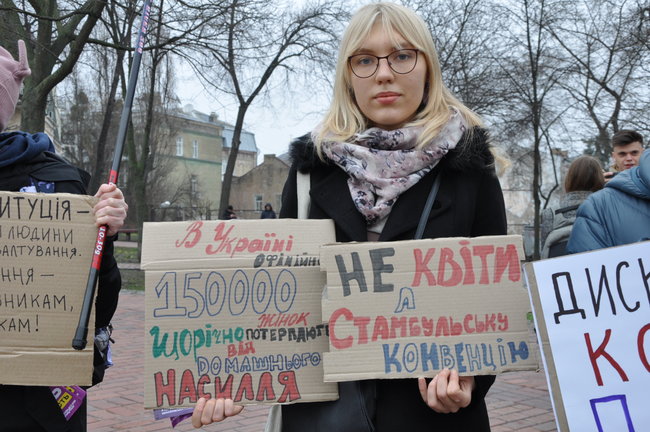 ИТУЦІЯ -
ЛЮДИНИ
АЛТУВАННЯ.
ННЯ -
ВНИКАМ,
КАМ!
В Україні
ОФІЦІЙНО
150000
ЖІНОК
Щорічно ПОТЕРПАЮТЬ
ВІД
ДОМАШНЬОГО
НАСИЛЛЯ
НЕ КВІТИ
А
СТАМБУЛЬСЬКУ
КОНВЕНЦІЮ
ДИС
К